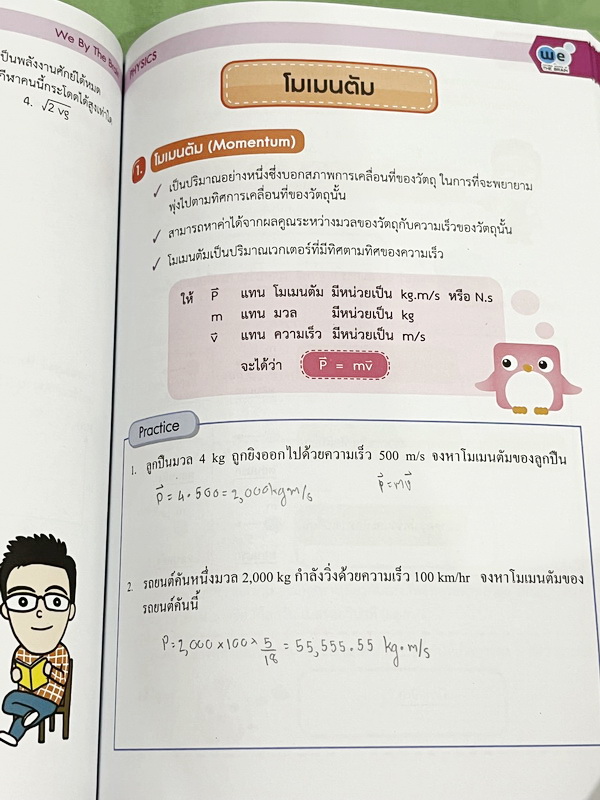 We By The Brain
เป็นพลังงานศักย์ได้หมด
กีฬาคนนี้กระโดดได้สูงเท่าใด
4. √2 vg
PHYSICS
we
THE BRAIN
โมเมนตัม
1. โมเมนตัม (Momentum)
✓ เป็นปริมาณอย่างหนึ่งซึ่งบอกสภาพการเคลื่อนที่ของวัตถุ ในการที่จะพยายาม
พุ่งไปตามทิศการเคลื่อนที่ของวัตถุนั้น
✓ สามารถหาค่าได้จากผลคูณระหว่างมวลของวัตถุกับความเร็วของวัตถุนั้น
✓ โมเมนตัมเป็นปริมาณเวกเตอร์ที่มีทิศตามทิศของความเร็ว
ให้ P⃗ แทน โมเมนตัม มีหน่วยเป็น kg.m/s หรือ N.s
m แทน มวล มีหน่วยเป็น kg
v⃗ แทน ความเร็ว มีหน่วยเป็น m/s
จะได้ว่า P⃗ = mv⃗
Practice
1. ลูกปืนมวล 4 kg ถูกยิงออกไปด้วยความเร็ว 500 m/s จงหาโมเมนตัมของลูกปืน
p⃗ = 4 · 500 = 2,000 kg m/s p⃗ = mv⃗
2. รถยนต์คันหนึ่งมวล 2,000 kg กำลังวิ่งด้วยความเร็ว 100 km/hr จงหาโมเมนตัมของ
รถยนต์คันนี้
P = 2,000 × 100 × 5/18 = 55,555.55 kg·m/s